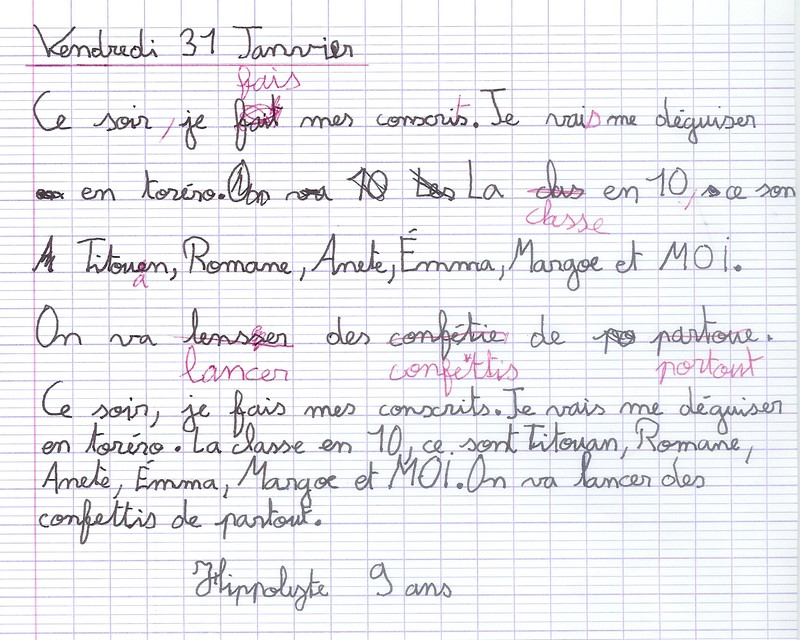 Vendredi 31 Janvier
fais
Ce soir, je fait mes conscrits. Je vais me déguiser
en toréro. On va 10 La clas en 10, ce son
classe
Titouen, Romane, Anete, Émma, Margoe et MOI.
a
On va lensser des confétie de partoue.
lancer confettis partout
Ce soir, je fais mes conscrits. Je vais me déguiser
en toréro. La classe en 10, ce sont Titouan, Romane,
Anete, Émma, Margoe et MOI. On va lancer des
confettis de partout.
Hippolyte 9 ans